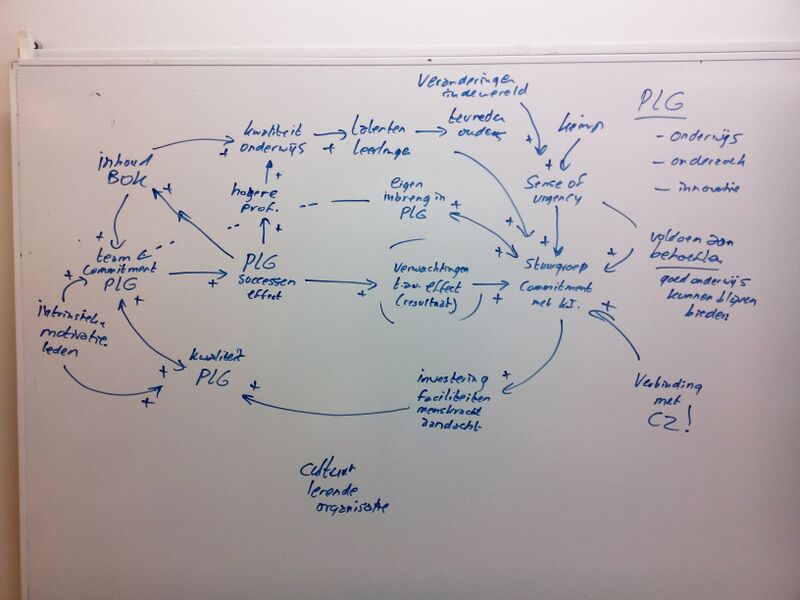 Veranderingen
in de wereld
PLG
- onderwijs
- onderzoek
- innovatie
krimp
kwaliteit
onderwijs
talenten
leerlingen
tevreden
ouders
inhoud
BOK
hogere
prof.
eigen
inbreng in
PLG
Sense of
urgency
team
commitment
PLG
PLG
successen
effect
verwachtingen
t.a.v. effect
(resultaat)
Stuurgroep
Commitment
met kI.
voldoen aan
behoeften
goed onderwijs
kunnen blijven
bieden
intrinsieke
motivatie
leden
kwaliteit
PLG
investering
faciliteiten
menskracht
aandacht
Verbinding
met
CZ!
Cultuur
lerende
organisatie